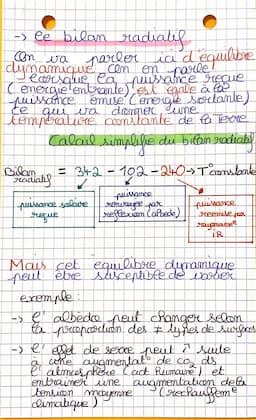 -> Le bilan radiatif
On va parler ici d'équilibre
dynamique. On en parle
lorsque la puissance reçue
(énergie entrante) est égale à la
puissance émise (énergie sortante)
Ce qui va donner une
température constante de la Terre
Calcul simplifié du bilan radiatif
Bilan radiatif = 342 - 102 - 240 -> T° constante
puissance solaire
reçue
puissance
renvoyée par
réflexion (albédo)
puissance
réémise par
rayonnemt
IR
Mais cet équilibre dynamique
peut être susceptible de varier
exemple :
-> l'albédo peut changer selon
la proportion des ≠ types de surfaces
-> l'effet de serre peut ↑ suite
à une augmentat° de CO2 ds
l'atmosphère (act humaine) et
entrainer une augmentation de la
moyenne (réchauffemt
climatique)